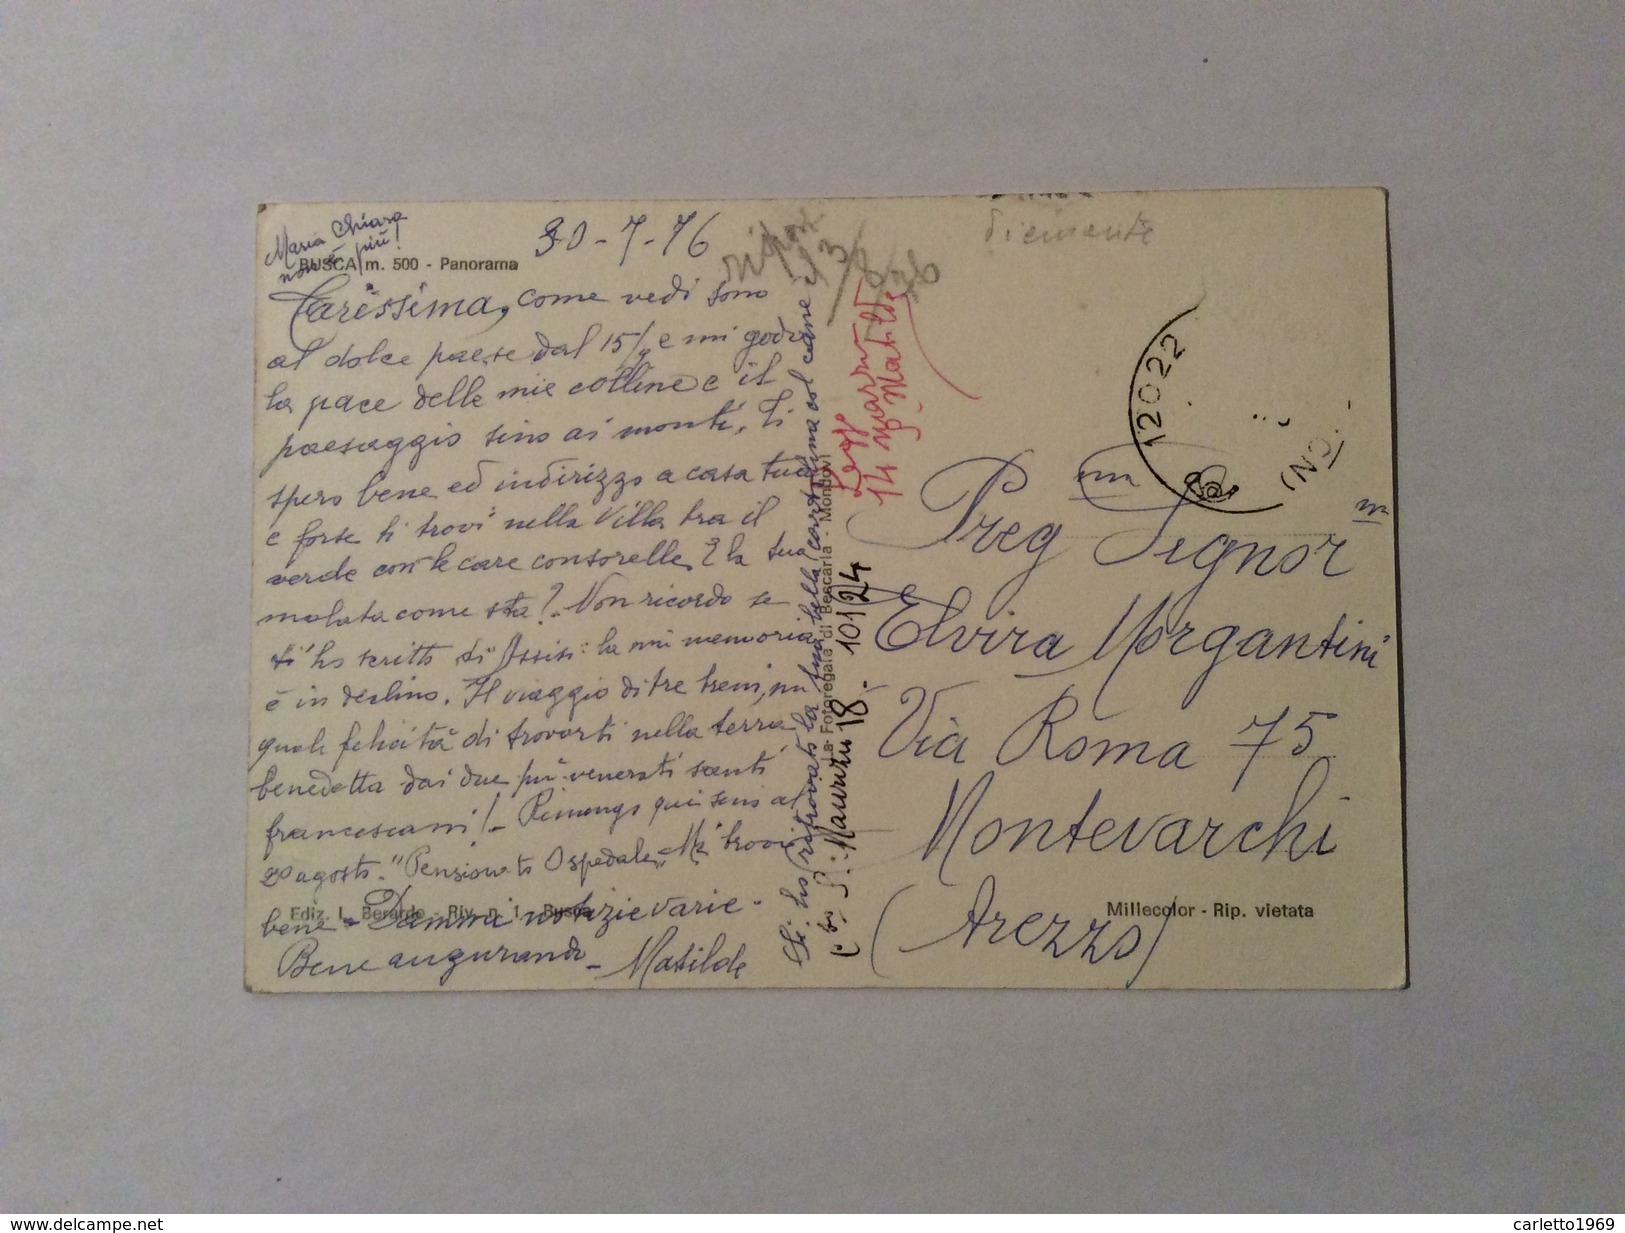 Maria Chiara
non è più!
BUSCA m. 500 - Panorama
30-7-76
Carissima, come vedi sono
al dolce paese dal 15/7 e mi godo
la pace delle mie colline e il
paesaggio sino ai monti. Ti
spero bene ed indirizzo a casa tua
e forse ti trovi nella Villa tra il
verde con le care consorelle. E la tua
malata come sta? - Non ricordo se
ti ho scritto di Assisi: la mia memoria
è in declino. Il viaggio di tre treni, ma
quale felicità di trovarti nella terra
benedetta dai due più venerati santi
francescani! - Rimango qui sino al
20 agosto. "Pensionato Ospedale" - Mi trovo
bene - Dammi notizie varie -
Ediz. L. Berardo - Riv. n. 1 - Busca
Bene augurando - Matilde
ho ritrovato la tua bella cartolina col cane il
18 - 10124
La Fotoregala di Beccaria - Mondovì
Leggo
14 marzo
Matilde
Piemonte
12022
(N
Preg.ma Signor.na
Elvira Morgantini
Via Roma 75
Montevarchi
(Arezzo)
Millecolor - Rip. vietata
www.delcampe.net
carletto1969